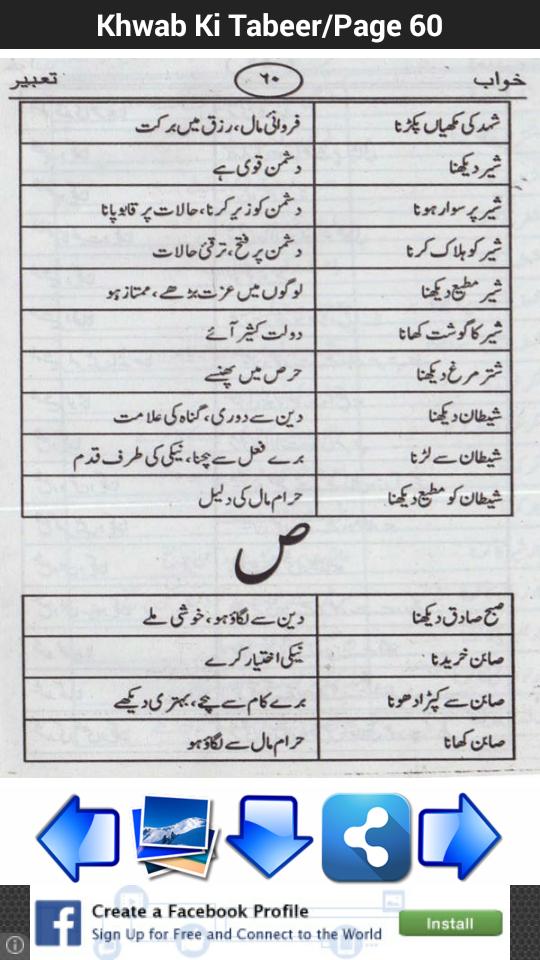 Khwab Ki Tabeer/Page 60
خواب ٦٠ تعبیر
شہد کی مکھیاں پکڑنا فروانئ مال، رزق میں برکت
شیر دیکھنا دشمن قوی ہے
شیر پر سوار ہونا دشمن کو زیر کرنا، حالات پر قابو پانا
شیر کو ہلاک کرنا دشمن پر فتح، ترقئ حالات
شیر مطیع دیکھنا لوگوں میں عزت بڑھے، ممتاز ہو
شیر کا گوشت کھانا دولت کثیر آئے
شتر مرغ دیکھنا حرص میں پھنسے
شیطان دیکھنا دین سے دوری، گناہ کی علامت
شیطان سے لڑنا برے فعل سے بچنا، نیکی کی طرف قدم
شیطان کو مطیع دیکھنا حرام مال کی دلیل
ص
صبح صادق دیکھنا دین سے لگاؤ ہو، خوشی ملے
صابن خریدنا نیکی اختیار کرے
صابن سے کپڑا دھونا برے کام سے بچے، بہتری دیکھے
صابن کھانا حرام مال سے لگاؤ ہو
Create a Facebook Profile
Sign Up for Free and Connect to the World
Install